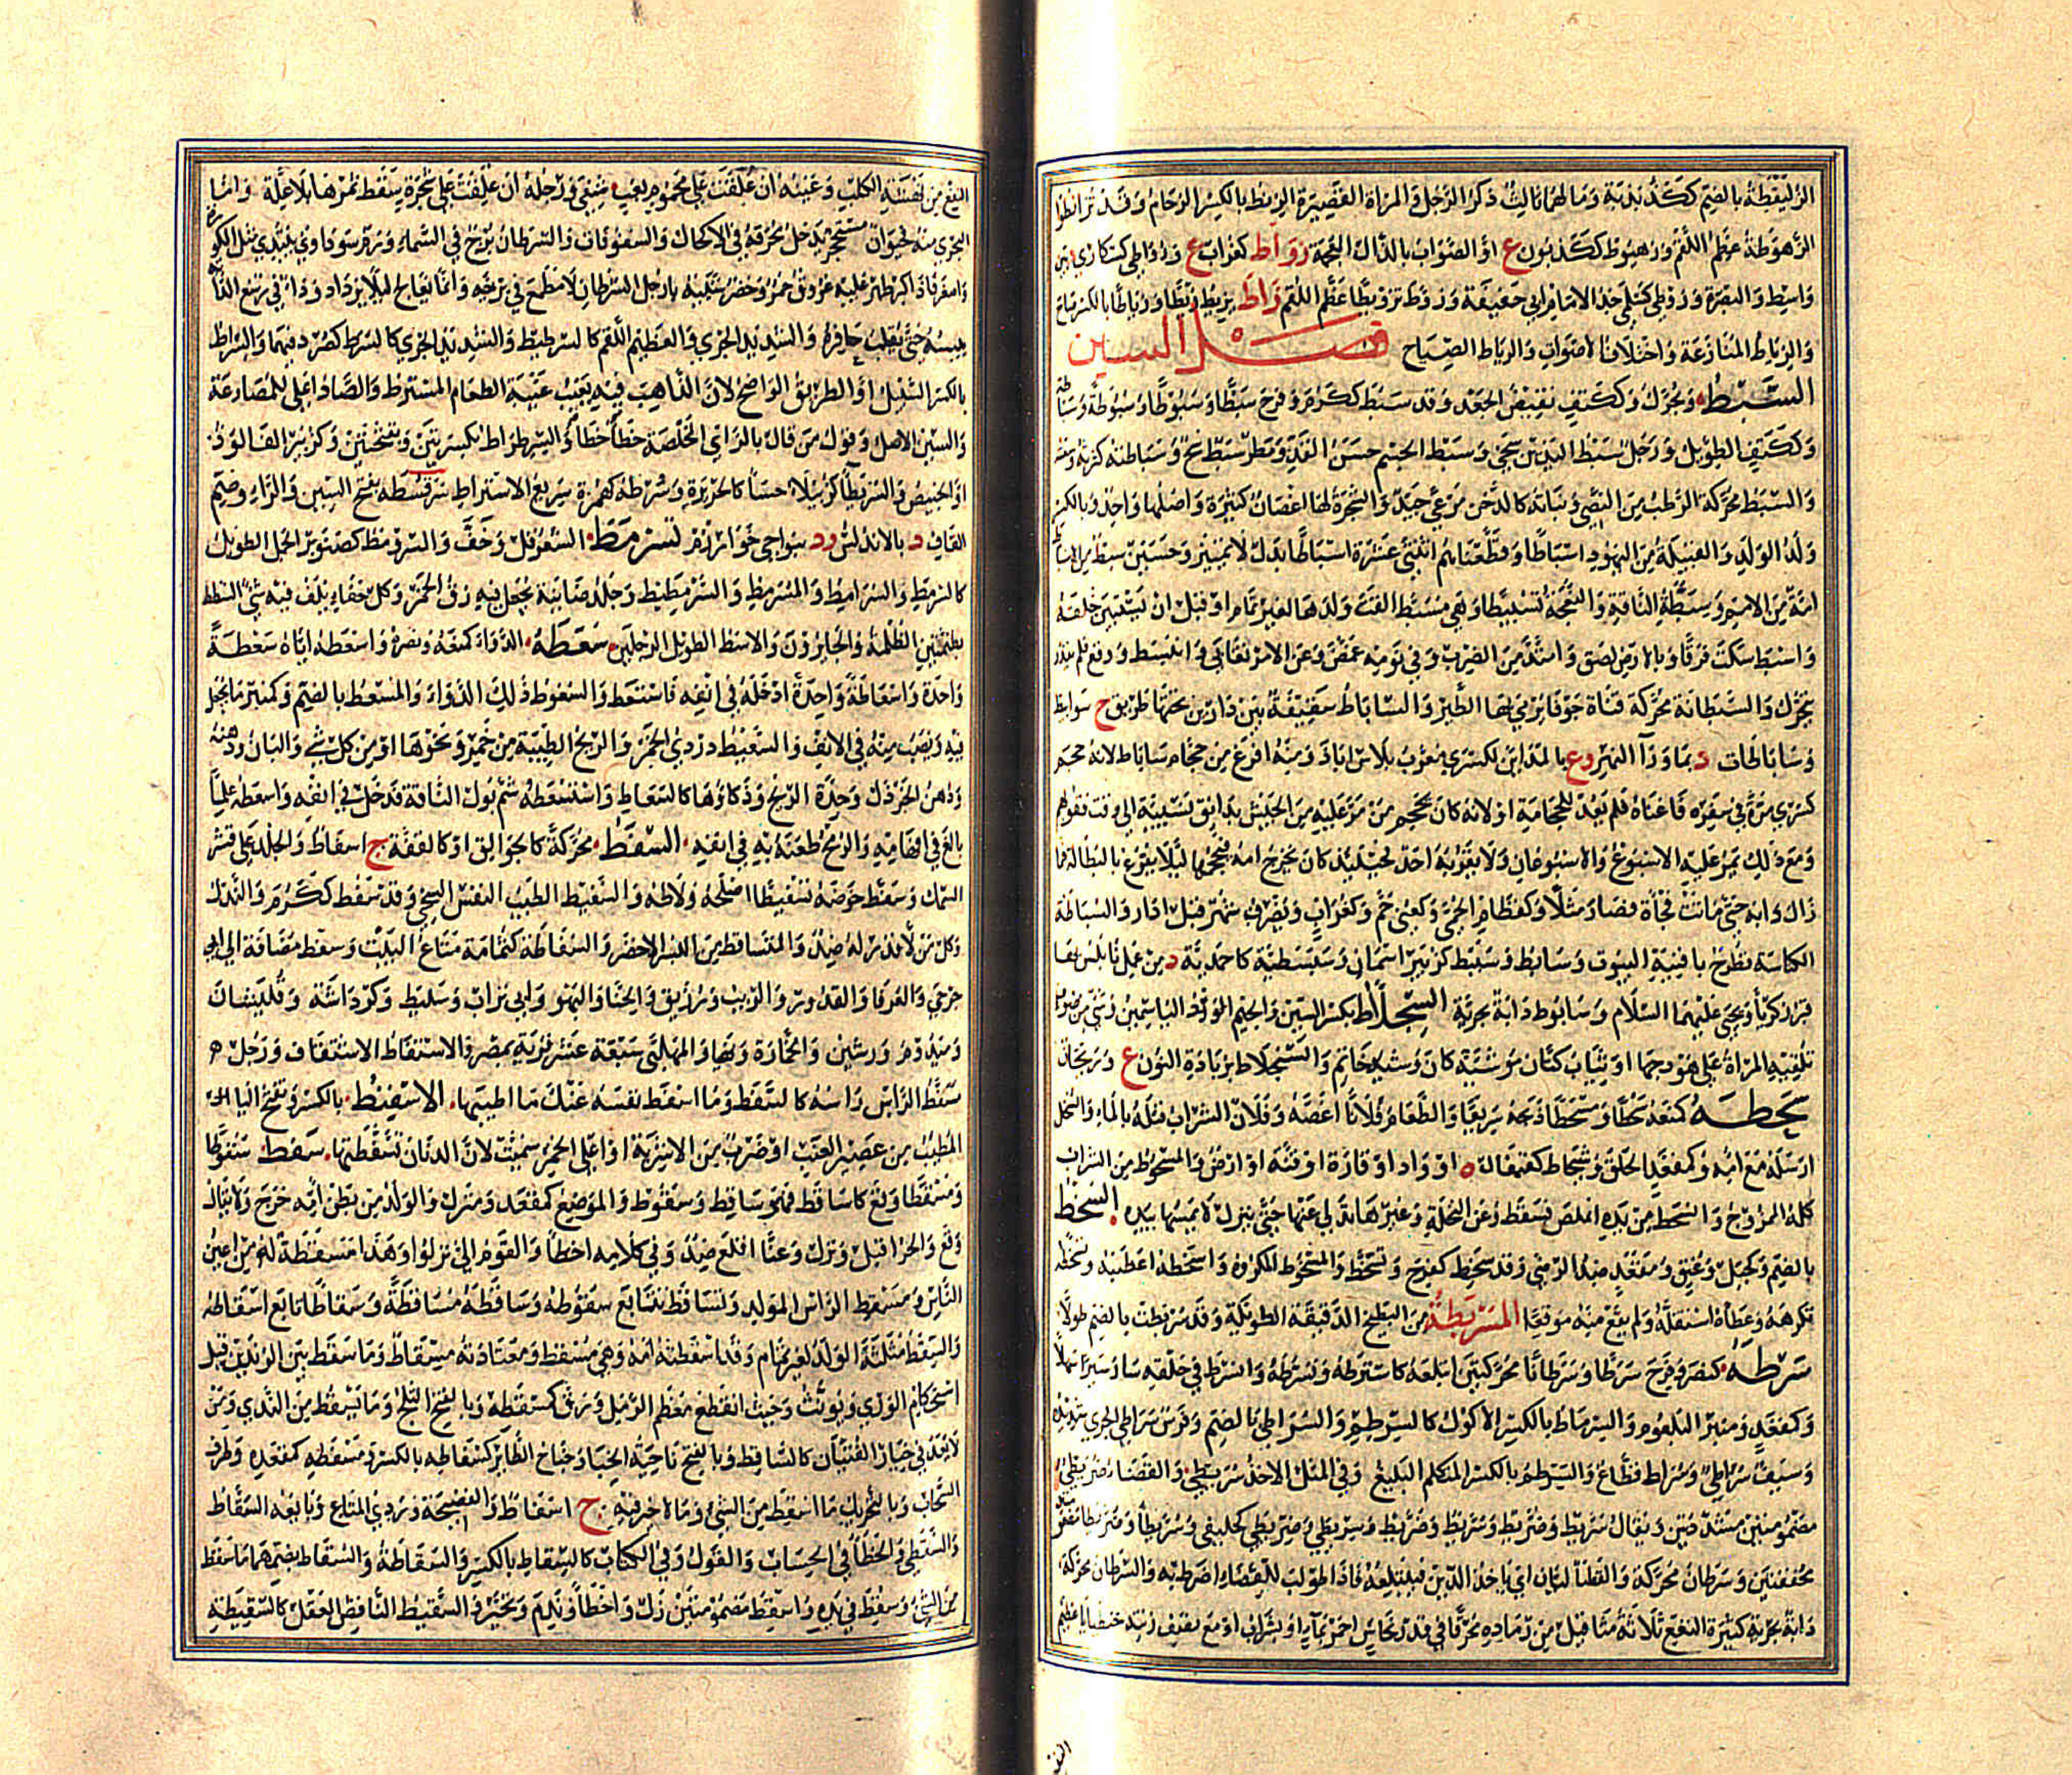 الزلنقطة بالضم ككذبذبة وما لهما ثالث ذكر الرجل والمراة القصيرة الزنط بالكسر الزحام وقد تزانطوا
الزهوطة عظم اللقم وزهيوط ككذيون ع او الصواب بالذال المعجمة زواط كغراب ع وزواطى كسكارى بين
واسط والبصرة وزوطى كسلمى جد الامام ابي حنيفة وزوط تزويطا عظم اللقم زاط يزيط زيطا وزياطا بالكسر صاح
والزياط المنازعة واختلاف الاصوات والزياط الصياح فصل السين
السبط ويحرك وككتف نقيض الجعد وقد سبط ككرم وفرح سبطا وسبوطا وسبوطة وسباطة
وككتف الطويل ورجل سبط اليدين سخى وسبط الجسم حسن القد ومطر سبط سح وسباطته كثرته وسعته
والسبط محركة الرطب من النصي ونباته كالدخن مرعى جيد والشجرة لها اغصان كثيرة واصلها واحد وبالكسر
ولد الولد والقبيلة من اليهود اسباطا وقطعناهم اثنتى عشرة اسباطا بدل لا تمييز وحسين سبط من الاسباط
امة من الامم وسبطت الناقة والنعجة تسبيطا وهي مسبط القت ولدها لغير تمام او قبل ان يستبين خلقه
واسبط سكت فرقا وبالارض لصق وامتد من الضرب وفي نومه غمض وعن الامر تغابى وانبسط ووقع فلم يقدر
يتحرك والسبطانة محركة قناة جوفا يرمى بها الطير والساباط سقيفة بين دارين تحتها طريق ج سوابيط
وساباطات د بما وراء النهر وع بالمدائن لكسرى معرب بلاس اباد ومنه افرغ من حجام ساباط لانه حجم
كسرى مرة في سفره فاغناه فلم يعد للحجامة او لانه كان يحجم من مر عليه من الجيش بدانق نسيئة الى وقت قفولهم
ومع ذلك يمر عليه الاسبوع والاسبوعان ولا يقربه احد فحينئذ كان يخرج امه فيحجمها لئلا يقرع بالبطالة فما
زال دابه حتى ماتت فجأة فصار مثلا وكقطام الحمى وكعنى حم وكغراب ويصرف شهر قبل اذار والسباطة
الكناسة تطرح بافنية البيوت وسابط وسبيط كزبير اسمان وسبسطية كاحمدية د من عمل نابلس بها
قبر زكريا ويحيى عليهما السلام وسابوط دابة بحرية السجلاط بكسر السين والجيم الياسمين وشى من صوف
تلقيه المراة على هودجها او ثياب كتان موشية كان وشيه خاتم والسنجلاط بزيادة النون ع وريحان
سحطه كمنعه سحطا ومسحطا ذبحه سريعا والطعام فلانا اغصه وفلان الشراب قتله بالماء والسخل
ارسله مع امه وكمقعد الحلق وشحاط كقيفال ه او واد او قارة او قنة او ارض والمسحوط من الشراب
كله الممزوج وانسحط من يده املص فسقط وعن النخلة وغيرها تدلى عنها حتى ينزل لا يمسها بيده السخط
بالضم وكجبل وعنق ومقعد ضد الرضى وقد سخط كفرح وتسخط والمسخوط المكروه واسخطه اغضبه وتسخطه
تكرهه وعطاه استقله ولم يقع منه موقعا المسربطة من البطيخ الدقيقة الطويلة وقد سربطت بالضم طولا
سرطه كنصر وفرح سرطا وسرطانا محركتين ابتلعه كاسترطه وتسرطه وانسرط في حلقه سار سيرا سهلا
وكمقعد ومنبر البلعوم والسرواط بالكسر الاكول كالسرطم والسراطي بالضم وفرس سراطي الجري شديده
وسيف سراطي وسراط قطاع والسرطم بالكسر المتكلم البليغ وفي المثل الاخذ سريطى والقضاء ضريطى
مضمومتين مشددتين ويقال سريط وضريط وسريط وضريط وسريطى وضريطى كخليفى وسريطاء وضريطاء
مخففتين وسرطان محركة والقضا ليان اي ياخذ الدين فيبتلعه فاذا طولب للقضاء اضرط به والسرطان محركة
دابة نهرية كثيرة النفع ثلاثة مثاقيل من رماده محرقا في قدر نحاس احمر بماء او بشراب او مع نصف زنته جنطيانا عظيم
النفع من نهشة الكلب وعينه ان علقت على محموم بغب شفي ورجله ان علقت على شجرة سقط ثمرها بلا علة واما
البحري منه فحيوان مستحجر يدخل محرقه في الاكحال والسنونات والسرطان برج في السماء وورم سوداوي يبتدي مثل اللوزة
واصغر فاذا كبر ظهر عليه عروق حمر وخضر شبيه بارجل السرطان لا مطمع في برئه وانما يعالج لئلا يزداد وداء في رسغ الدابة
ييبسه حتى يقلب حافره والشديد الجري والعظيم اللقم كالسرطيط والشديد الجري كالسرط كصرد فيهما والسراط
بالكسر السبيل او الطريق الواضح لان الذاهب فيه يغيب غيبة الطعام المسترط والصاد اعلى للمضارعة
والسين الاصل وقول من قال بالزاي المخلصة خطأ خطأ والسرطراط بكسرتين وبفتحتين وكزبير الفالوذ
او الخبيص والسريطاء كرتيلاء حسا كالحريرة وسرطة كهمزة سريع الاستراط سرقسطه بفتح السين والراء وضم
القاف د بالاندلس ود بنواحي خوارزم سرمط الشعر قل وخف والسرومط كصنوبر الجمل الطويل
كالسرمط والسرامط والمسرمط والسرمطيط وجلد ضائنة يجعل فيه زق الخمر وكل خفاء يلف فيه شي السطط
بضمتين الظلمة والجايرون والاسط الطويل الرجلين سعطه الدواء كمنعه ونصره واسعطه اياه سعطة
واحدة واسعاطة واحدة ادخله في انفه فاستعط والسعوط ذلك الدواء والمسعط بالضم وكمنبر ما يجعل
فيه ويصب منه في الانف والسعيط دردي الخمر والريح الطيبة من خمر ونحوها او من كل شي والبان ودهنه
ودهن الخردل وحدة الريح وذكاؤها كالسعاط واستسعطه شم بول الناقة فدخل في انفه واسعطه علما
بالغ في افهامه والرمح طعنه به في انفه السفط محركة كالجوالق او كالقفة ج اسفاط والجلد على قشر
السمك وسفط حوضه تسفيطا اصلحه ولاطه والسفيط الطيب النفس السخي وقد سفط ككرم والنذل
وكل من لا قدر له ضد والمتساقط من البسر الاخضر والسفاطة كثمامة متاع البيت وسفط مضافة الى ابي
جرجى والعرفا والقدور والزيت وزريق والحنا والبهو وابي تراب وسليط وكرداسة وقليشان
وميدوم ورشين والخمارة ونهيا والمهلبي سبعة عشر قرية بمصر والاستفاط الاشتفاف ورجل
سفط الراس راسه كالسفط وما اسفط نفسه عنك ما اطيبها الاسفنط بالكسر وتفتح الفاء
المطيب من عصير العنب او ضرب من الاشربة او اعلى الخمر سميت لان الدنان تسفطتها سقط سقوطا
ومسقطا وقع كاساقط فهو ساقط وسقوط والموضع كمقعد ومنزل والولد من بطن امه خرج ولا يقال
وقع والحر اقبل ونزل وعنا اقلع ضد وفي كلامه اخطأ والقوم الى نزلوا وهذا مسقطة له من اعين
الناس ومسقط الراس المولد وتساقط تتابع سقوطه وساقطه مساقطة وسقاطا تابع اسقاطه
والسقط مثلثة الولد لغير تمام وقد اسقطته امه وهي مسقط ومعتادته مسقاط وما سقط بين الزندين قبل
استحكام الوري ويؤنث وحيث انقطع معظم الرمل ورق كمسقطه وبالفتح الثلج وما يسقط من الندي ومن
لا يعد في خيار الفتيان كالساقط وبالفتح ناحية الخباء وجناح الطائر كسقاطه بالكسر ومسقطه كمقعده وطرف
السحاب وبالتحريك ما اسقط من الشي وما لا خير فيه ج اسقاط والفضيحة وردي المتاع وبائعه السقاط
والسقطي والخطأ في الحساب والقول وفي الكتاب كالسقاط بالكسر والسقاطة والسقاط بضمهما ما سقط
من الشي وسقط في يده واسقط مضمومتين زل واخطأ وندم وتحير والسقيط الناقص العقل كالسقيطة